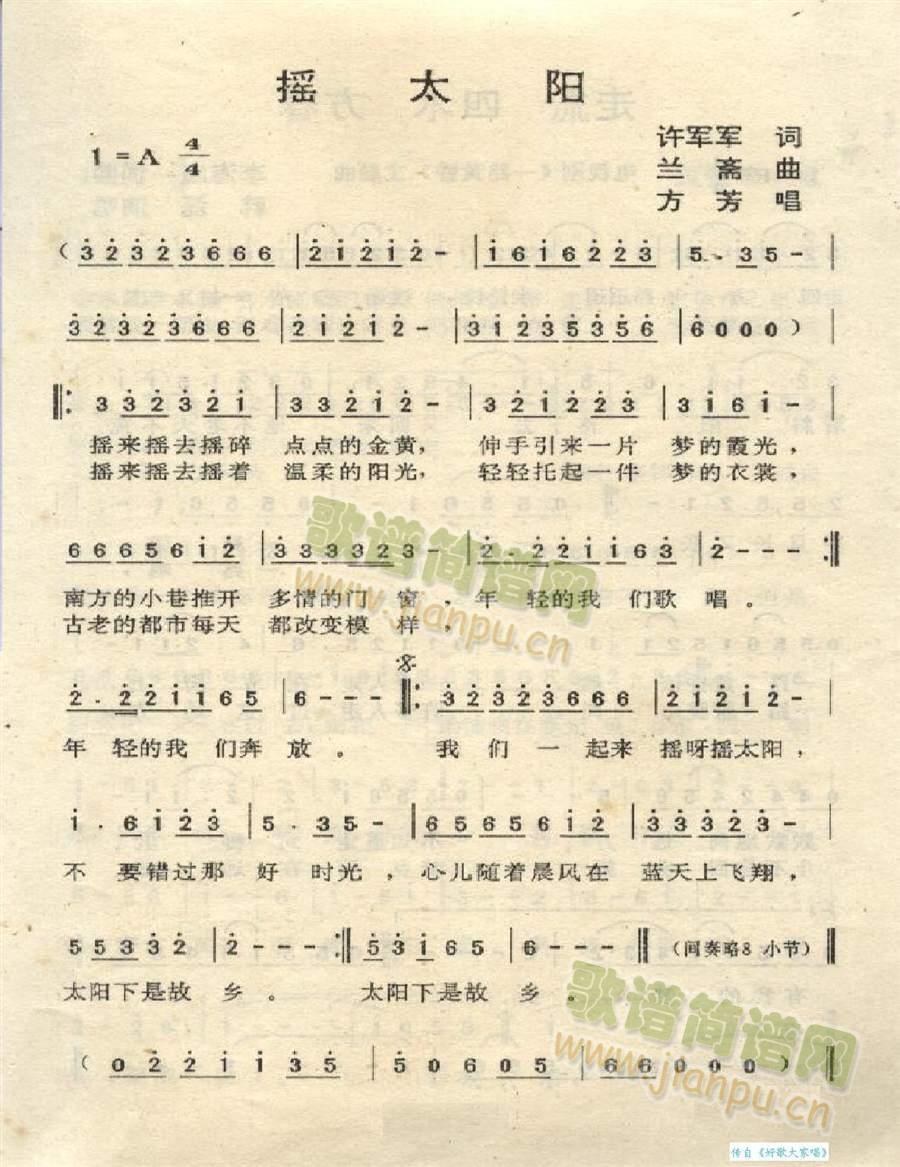 摇太阳
1=A 4/4
许军军 词
兰斋 曲
方芳 唱
(323236666 | 21212- | 161616223 | 5.35- |
323236666 | 21212- | 3123535 6 | 6000) |
‖: 3323321 | 33212- | 3212223 | 3161- |
摇来摇去摇碎 点点的金黄， 伸手引来一片 梦的霞光，
摇来摇去摇着 温柔的阳光， 轻轻托起一件 梦的衣裳，
6665612 | 3333323- | 2.221163 | 2--- :‖
南方的小巷推开 多情的门 窗，年 轻的我 们歌 唱。
古老的都市每天 都改变模 样，
2.221165 | 6--- ‖: 32323666 | 21212- |
年 轻的我 们奔 放。 我 们 一 起来 摇呀摇太阳，
1.6123 | 5.35- | 65656512 | 333323- |
不 要错过那 好 时光，心儿随着晨风在 蓝天上飞翔，
553332 | 2--- :‖ 53165 | 6--- ‖ (间奏略8 小节) ‖
太阳下是故 乡。 太阳下是故 乡。
(0221135 | 50605 | 66000) ‖
歌谱简谱网
www.jianpu.cn
歌谱简谱网
www.jianpu.cn
传自《好歌大家唱》